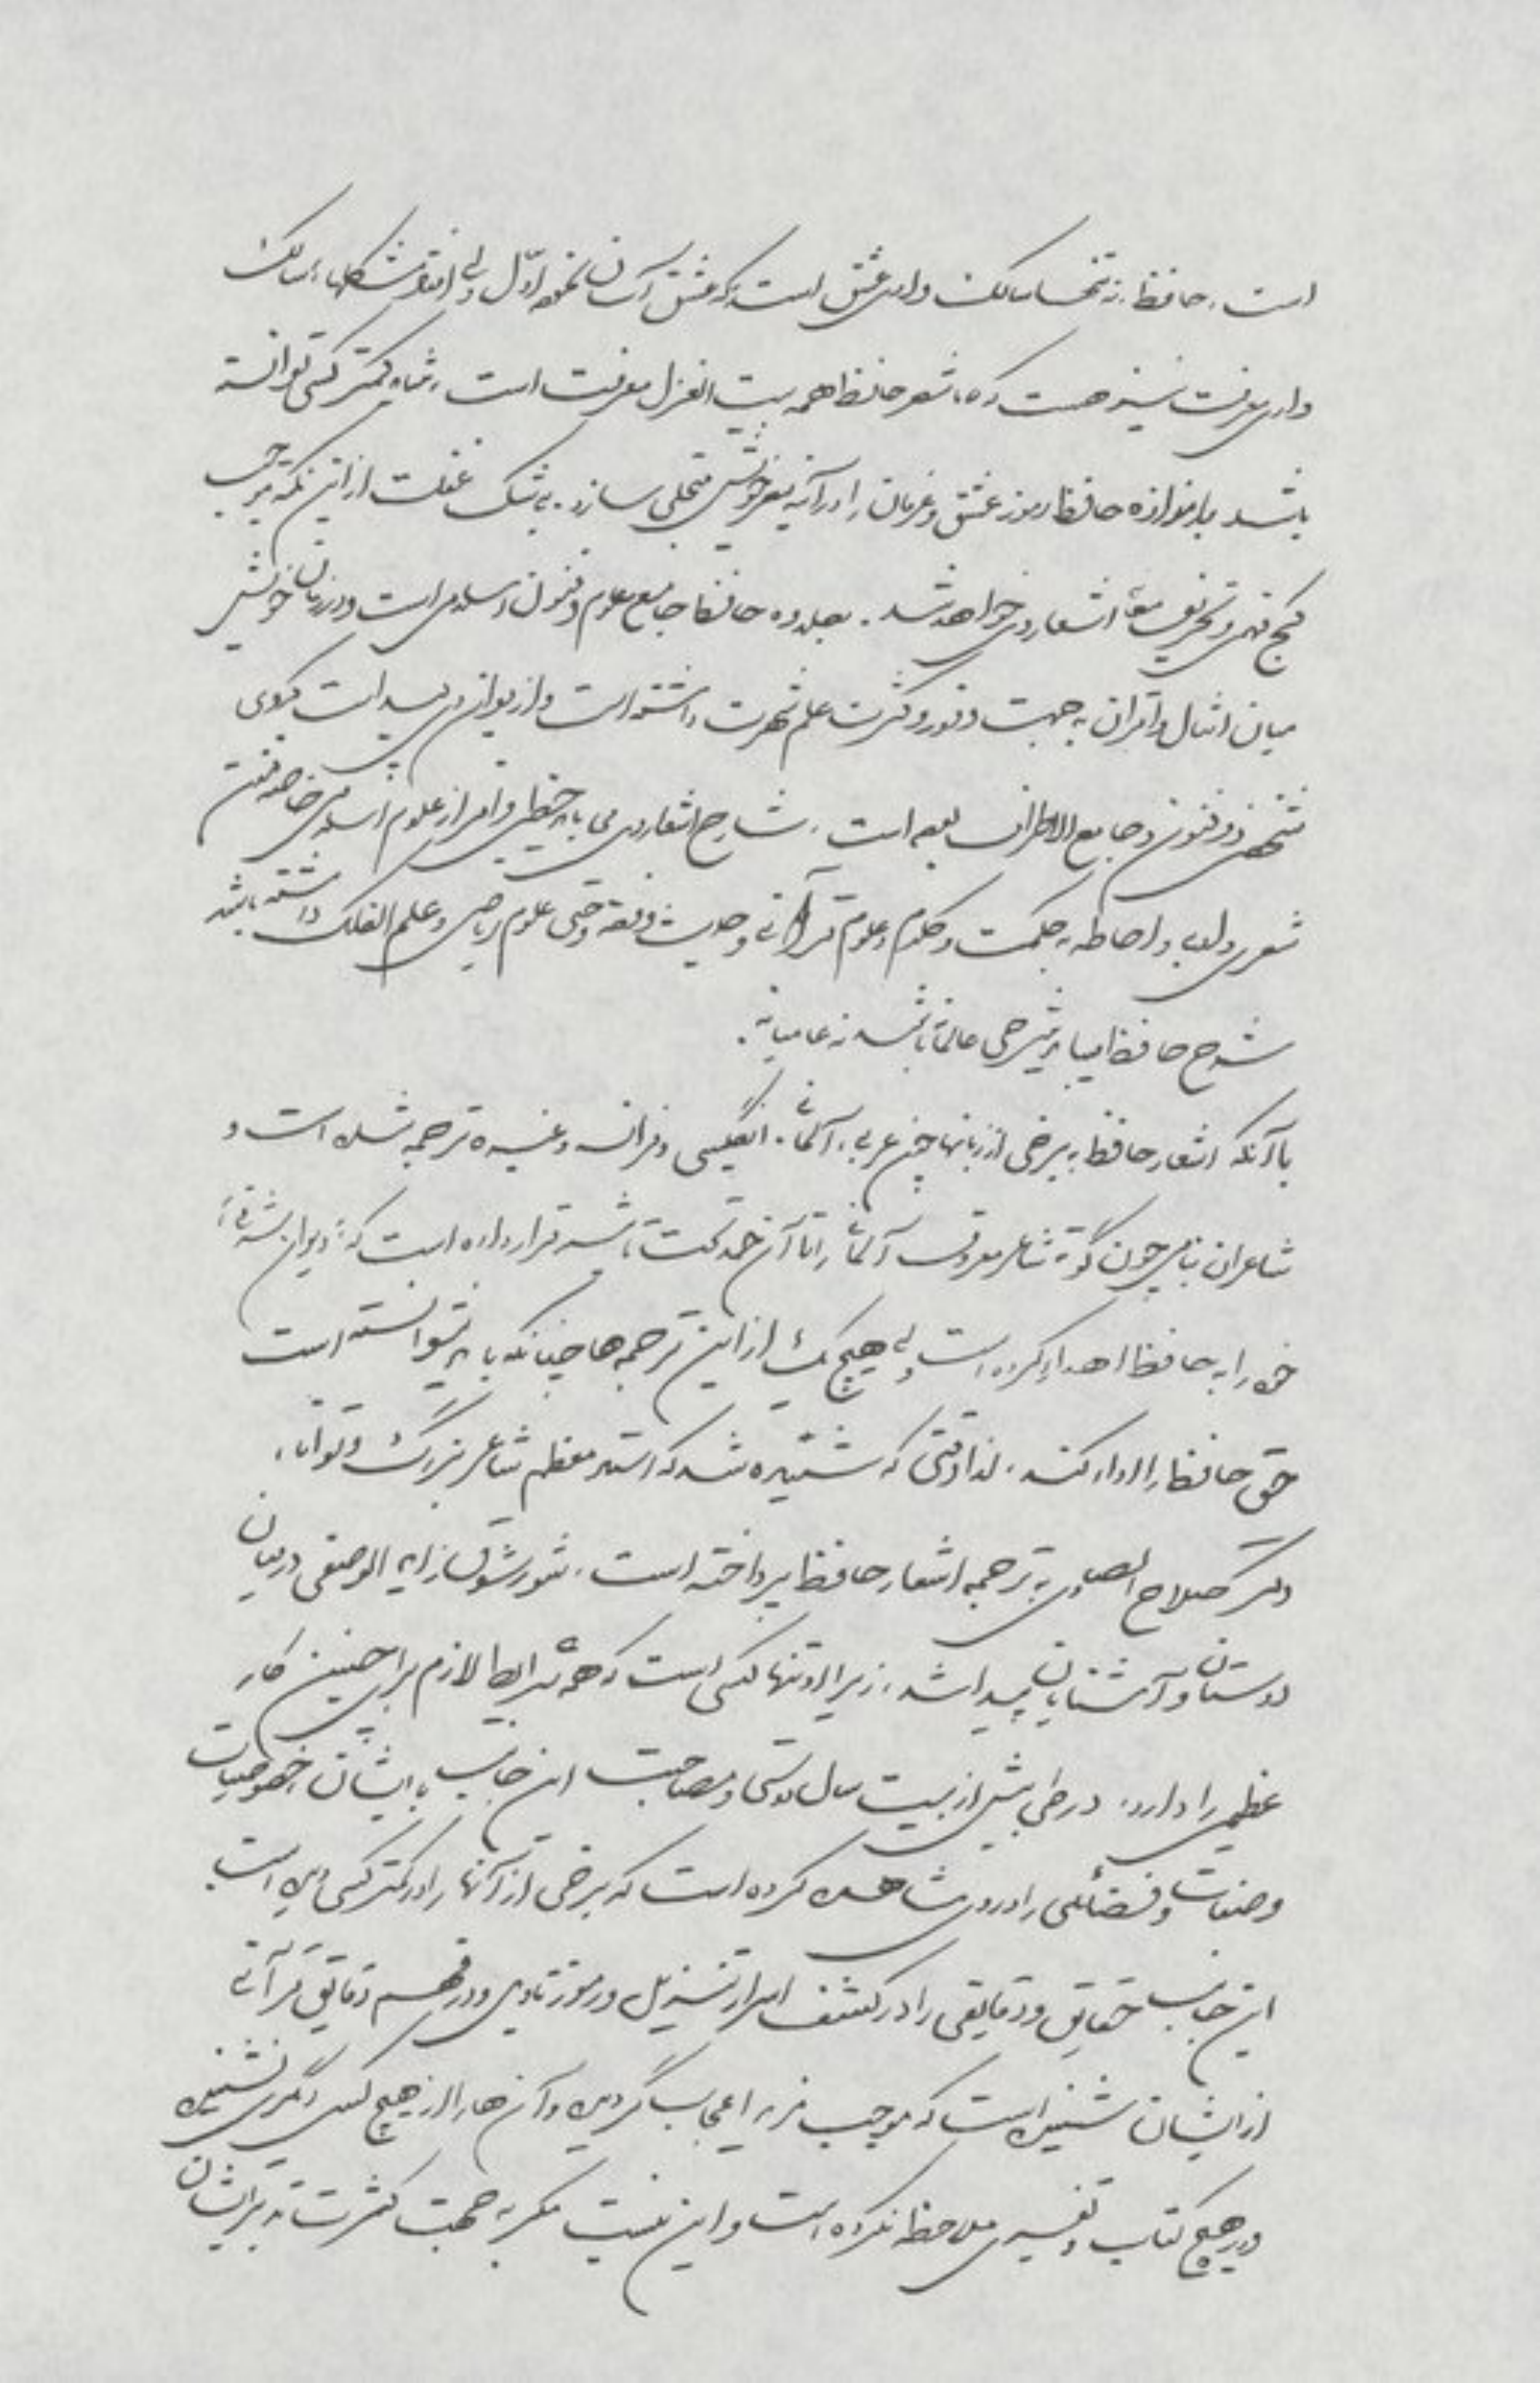 است. حافظ نه تنها سالک وادی عشق است که عشق آسان نمود اول ولی افتاد مشکلها، سالک
وادی معرفت نیز هست که شعر حافظ همه بیت الغزل معرفت است. شاید کمتر کسی توانسته
باشد به اندازه حافظ رموز عشق و عرفان را در آئینه شعر خویش متجلی سازد. بی شک غفلت از این نکته موجب
کج فهمی و تحریف معنی اشعار وی خواهد شد. بعلاوه حافظ جامع علوم و فنون اسلامی است و در زمان خویش
میان امثال و اقران به جهت وفور و کثرت علم شهرت داشته است و از دیوان وی پیداست که وی
شخصی ذوفنون و جامع الاطراف بوده است. شارح اشعار وی می باید حظی وافر از علوم اسلامی خاصه فنون
شعری و ادبی و احاطه به حکمت و کلام و علوم قرآنی و حدیث و فقه و حتی علوم ریاضی و علم الفلک داشته باشد
شرح حافظ میباید شرحی عالمانه باشد نه عامیانه.
با آنکه اشعار حافظ به برخی از زبانها چون عربی، آلمانی، انگلیسی و فرانسه و غیره ترجمه شده است و
شاعران بنامی چون گوته شاعر معروف آلمانی را تا آن حد تحت تاثیر قرار داده است که "دیوان شرقی"
خود را به حافظ اهداء کرده است ولی هیچ یک از این ترجمه ها چنانکه باید نتوانسته است
حق حافظ را ادا کند. لذا وقتی که شنیده شد که استاد معظم شاعر بزرگ و توانا،
دکتر صلاح الصاوی به ترجمه اشعار حافظ پرداخته است، شور و شوق زاید الوصفی در میان
دوستان و آشنایان پیدا شد، زیرا او تنها کسی است که همه شرایط لازم برای چنین کار
عظیمی را دارد. در طی بیش از بیست سال دوستی و مصاحبت این جانب با ایشان، خصوصیات
و صفات و فضائلی را در وی مشاهده کرده است که برخی از آنها را در کمتر کسی دیده است
این جانب حقایق و دقایقی را در کشف اسرار تنزیل و رموز تاویل و در فهم دقایق قرآنی
از ایشان شنیده است که موجب مزید اعجاب گردیده و آن ها را از هیچ کس دیگری نشنیده
و در هیچ کتاب و تفسیری ملاحظه نکرده است و این نیست مگر به جهت کثرت تدبر ایشان